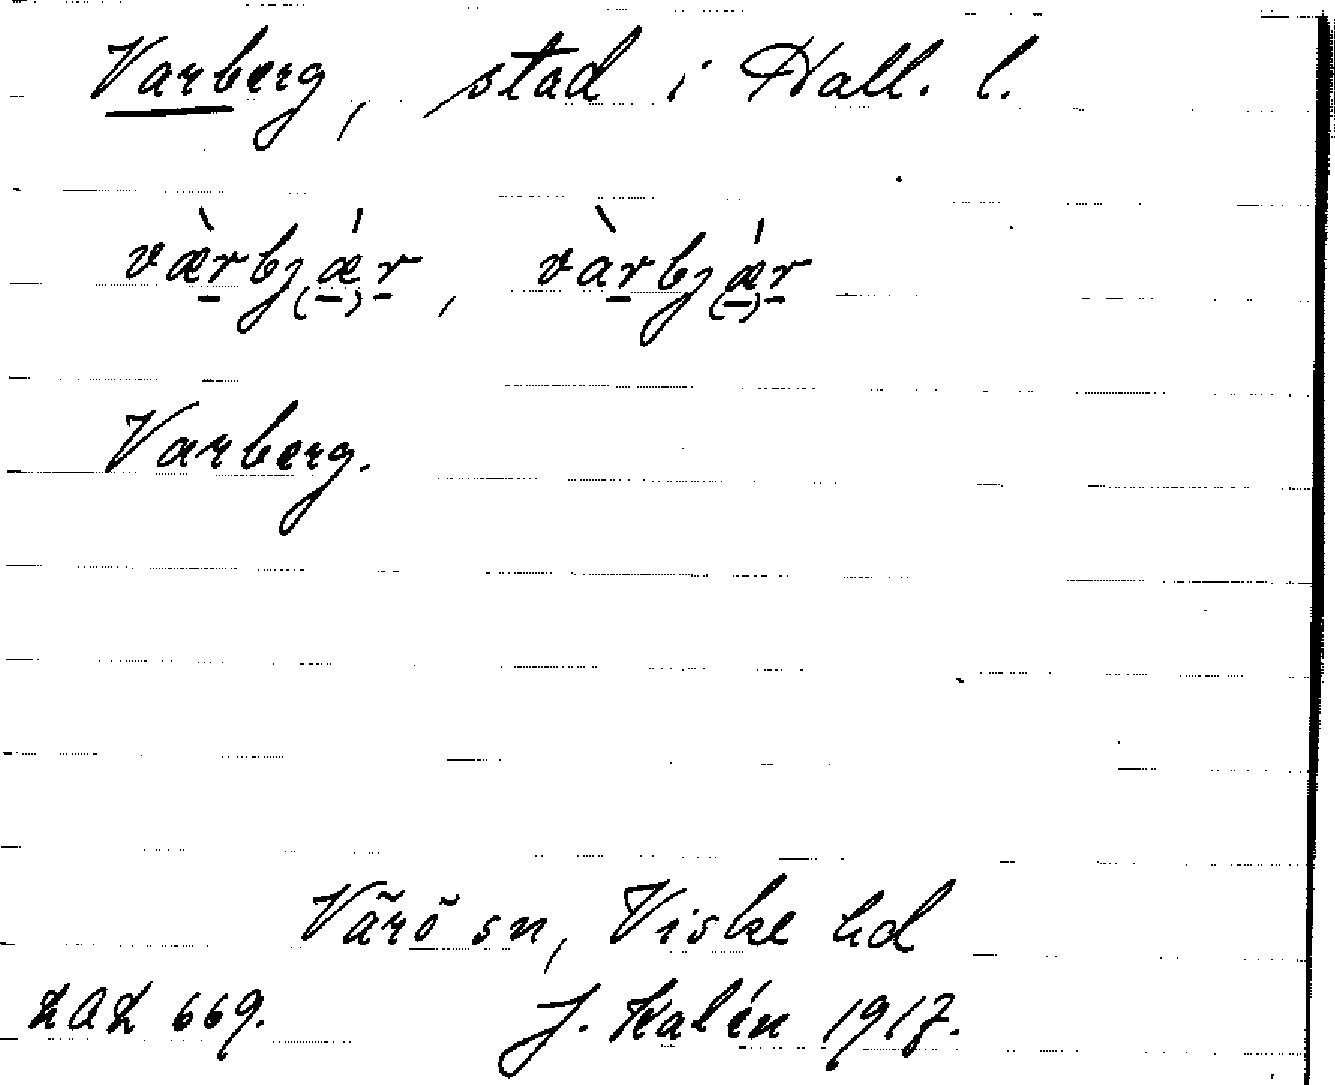 Varberg, stad i Hall. l.
væ̀rbjǽr, vàrbjǽr
Varberg.
Värö sn, Viske hd
LAL 669. J. Kalén 1917.